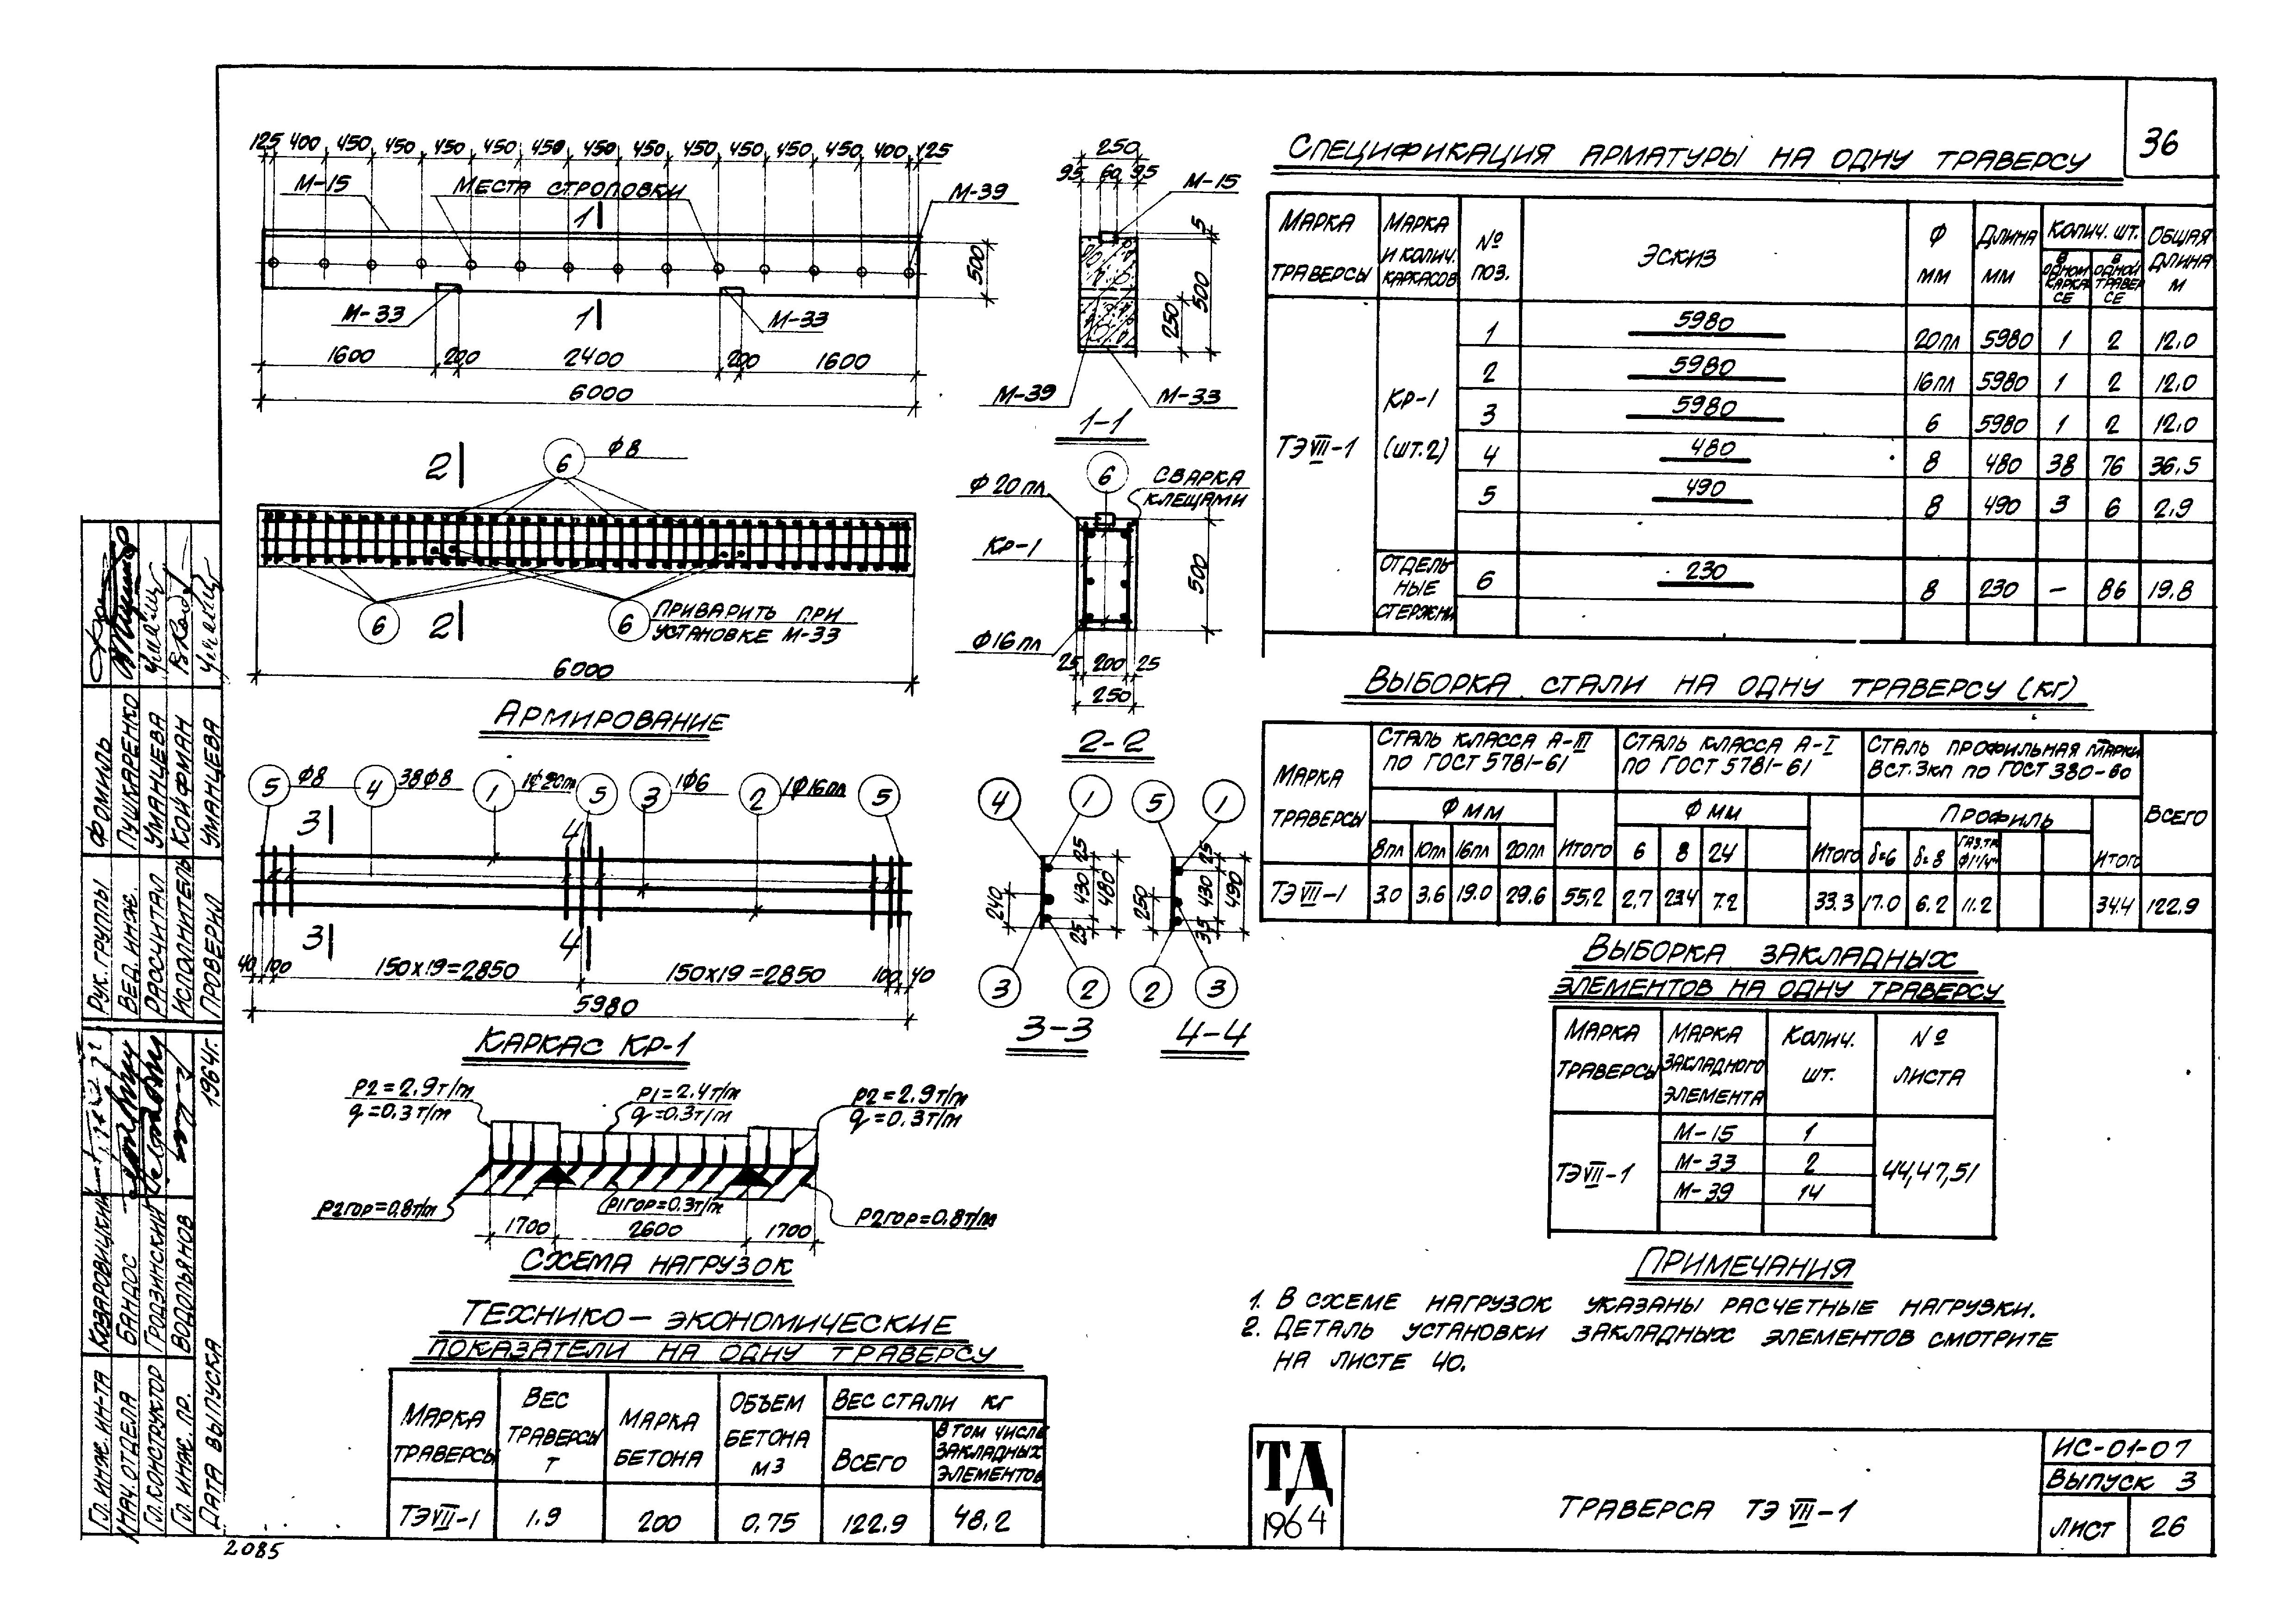 36
125 400 450 450 450 450 450 450 450 450 450 450 450 400 125
М-15
МЕСТА СТРОПОВКИ
М-39
1
500
М-33
1
М-33
1600 200 2400 200 1600
6000
250
95 60 95
М-15
5
500
250
М-39
М-33
1-1
2
6 Ф8
2
6
6 ПРИВАРИТЬ ПРИ
УСТАНОВКЕ М-33
6000
АРМИРОВАНИЕ
6
СВАРКА
КЛЕЩАМИ
Ф20пл
КР-1
500
Ф16пл
25 200 25
250
2-2
5 Ф8 4 38Ф8 1 1Ф20пл 5 3 1Ф6 2 1Ф16пл 5
3 4
3 4
40 100 150х19=2850 150х19=2850 100 40
5980
КАРКАС КР-1
4 1
25
240 430 480
25
3 2
3-3
5 1
25
250 430 490
35
2 3
4-4
Р2=2.9т/м
q=0.3т/м
Р1=2.4т/м
q=0.3т/м
Р2=2.9т/м
q=0.3т/м
Р2гор=0.8т/м
Р1гор=0.3т/м
Р2гор=0.8т/м
1700 2600 1700
СХЕМА НАГРУЗОК
ТЕХНИКО-ЭКОНОМИЧЕСКИЕ
ПОКАЗАТЕЛИ НА ОДНУ ТРАВЕРСУ
МАРКА ТРАВЕРСЫ
ВЕС ТРАВЕРСЫ Т
МАРКА БЕТОНА
ОБЪЕМ БЕТОНА М3
ВЕС СТАЛИ КГ
ВСЕГО
В ТОМ ЧИСЛЕ ЗАКЛАДНЫХ ЭЛЕМЕНТОВ
ТЭVII-1 1.9 200 0.75 122.9 48.2
СПЕЦИФИКАЦИЯ АРМАТУРЫ НА ОДНУ ТРАВЕРСУ
МАРКА ТРАВЕРСЫ
МАРКА И КОЛИЧ. КАРКАСОВ
№ ПОЗ.
ЭСКИЗ
Ф ММ
ДЛИНА ММ
КОЛИЧ. ШТ.
В ОДНОМ КАРКАСЕ
В ОДНОЙ ТРАВЕРСЕ
ОБЩАЯ ДЛИНА М
ТЭVII-1
КР-1
(шт.2)
1 5980 20пл 5980 1 2 12.0
2 5980 16пл 5980 1 2 12.0
3 5980 6 5980 1 2 12.0
4 480 8 480 38 76 36.5
5 490 8 490 3 6 2.9
ОТДЕЛЬ
НЫЕ
СТЕРЖНИ
6 230 8 230 — 86 19.8
ВЫБОРКА СТАЛИ НА ОДНУ ТРАВЕРСУ (КГ)
МАРКА ТРАВЕРСЫ
СТАЛЬ КЛАССА А-III
ПО ГОСТ 5781-61
СТАЛЬ КЛАССА А-I
ПО ГОСТ 5781-61
СТАЛЬ ПРОФИЛЬНАЯ МАРКИ
В СТ.3кп ПО ГОСТ 380-60
ВСЕГО
Ф ММ
Ф ММ
ПРОФИЛЬ
8пл 10пл 16пл 20пл ИТОГО 6 8 24 ИТОГО δ=6 δ=8 ГАЗ.ТР. ИТОГО
ТЭVII-1 3.0 3.6 19.0 29.6 55.2 2.7 23.4 7.2 33.3 17.0 6.2 11.2 34.4 122.9
ВЫБОРКА ЗАКЛАДНЫХ
ЭЛЕМЕНТОВ НА ОДНУ ТРАВЕРСУ
МАРКА ТРАВЕРСЫ
МАРКА ЗАКЛАДНОГО ЭЛЕМЕНТА
КОЛИЧ. ШТ.
№ ЛИСТА
ТЭVII-1
М-15 1
М-33 2
М-39 14
44,47,51
ПРИМЕЧАНИЯ
1. В СХЕМЕ НАГРУЗОК УКАЗАНЫ РАСЧЕТНЫЕ НАГРУЗКИ.
2. ДЕТАЛЬ УСТАНОВКИ ЗАКЛАДНЫХ ЭЛЕМЕНТОВ СМОТРИТЕ
НА ЛИСТЕ 40.
ТД
1964
ТРАВЕРСА ТЭ VII-1
ИС-01-07
ВЫПУСК 3
ЛИСТ 26
РУК. ГРУППЫ ФОМИЛЬ
ВЕД. ИНЖ. ПУШКАРЕНКО
РАССЧИТАЛ УМАНЦЕВА
ИСПОЛНИТЕЛЬ КОЙФМАН
ПРОВЕРИЛ УМАНЦЕВА
ГЛ. ИНЖ. ИН-ТА КОЗАРОВИЦКИЙ
НАЧ. ОТДЕЛА БАНДОС
ГЛ. КОНСТРУКТОР ГРОДЗИНСКИЙ
ГЛ. ИНЖ. ПР. ВОДОПЬЯНОВ
ДАТА ВЫПУСКА 1964г.
2085